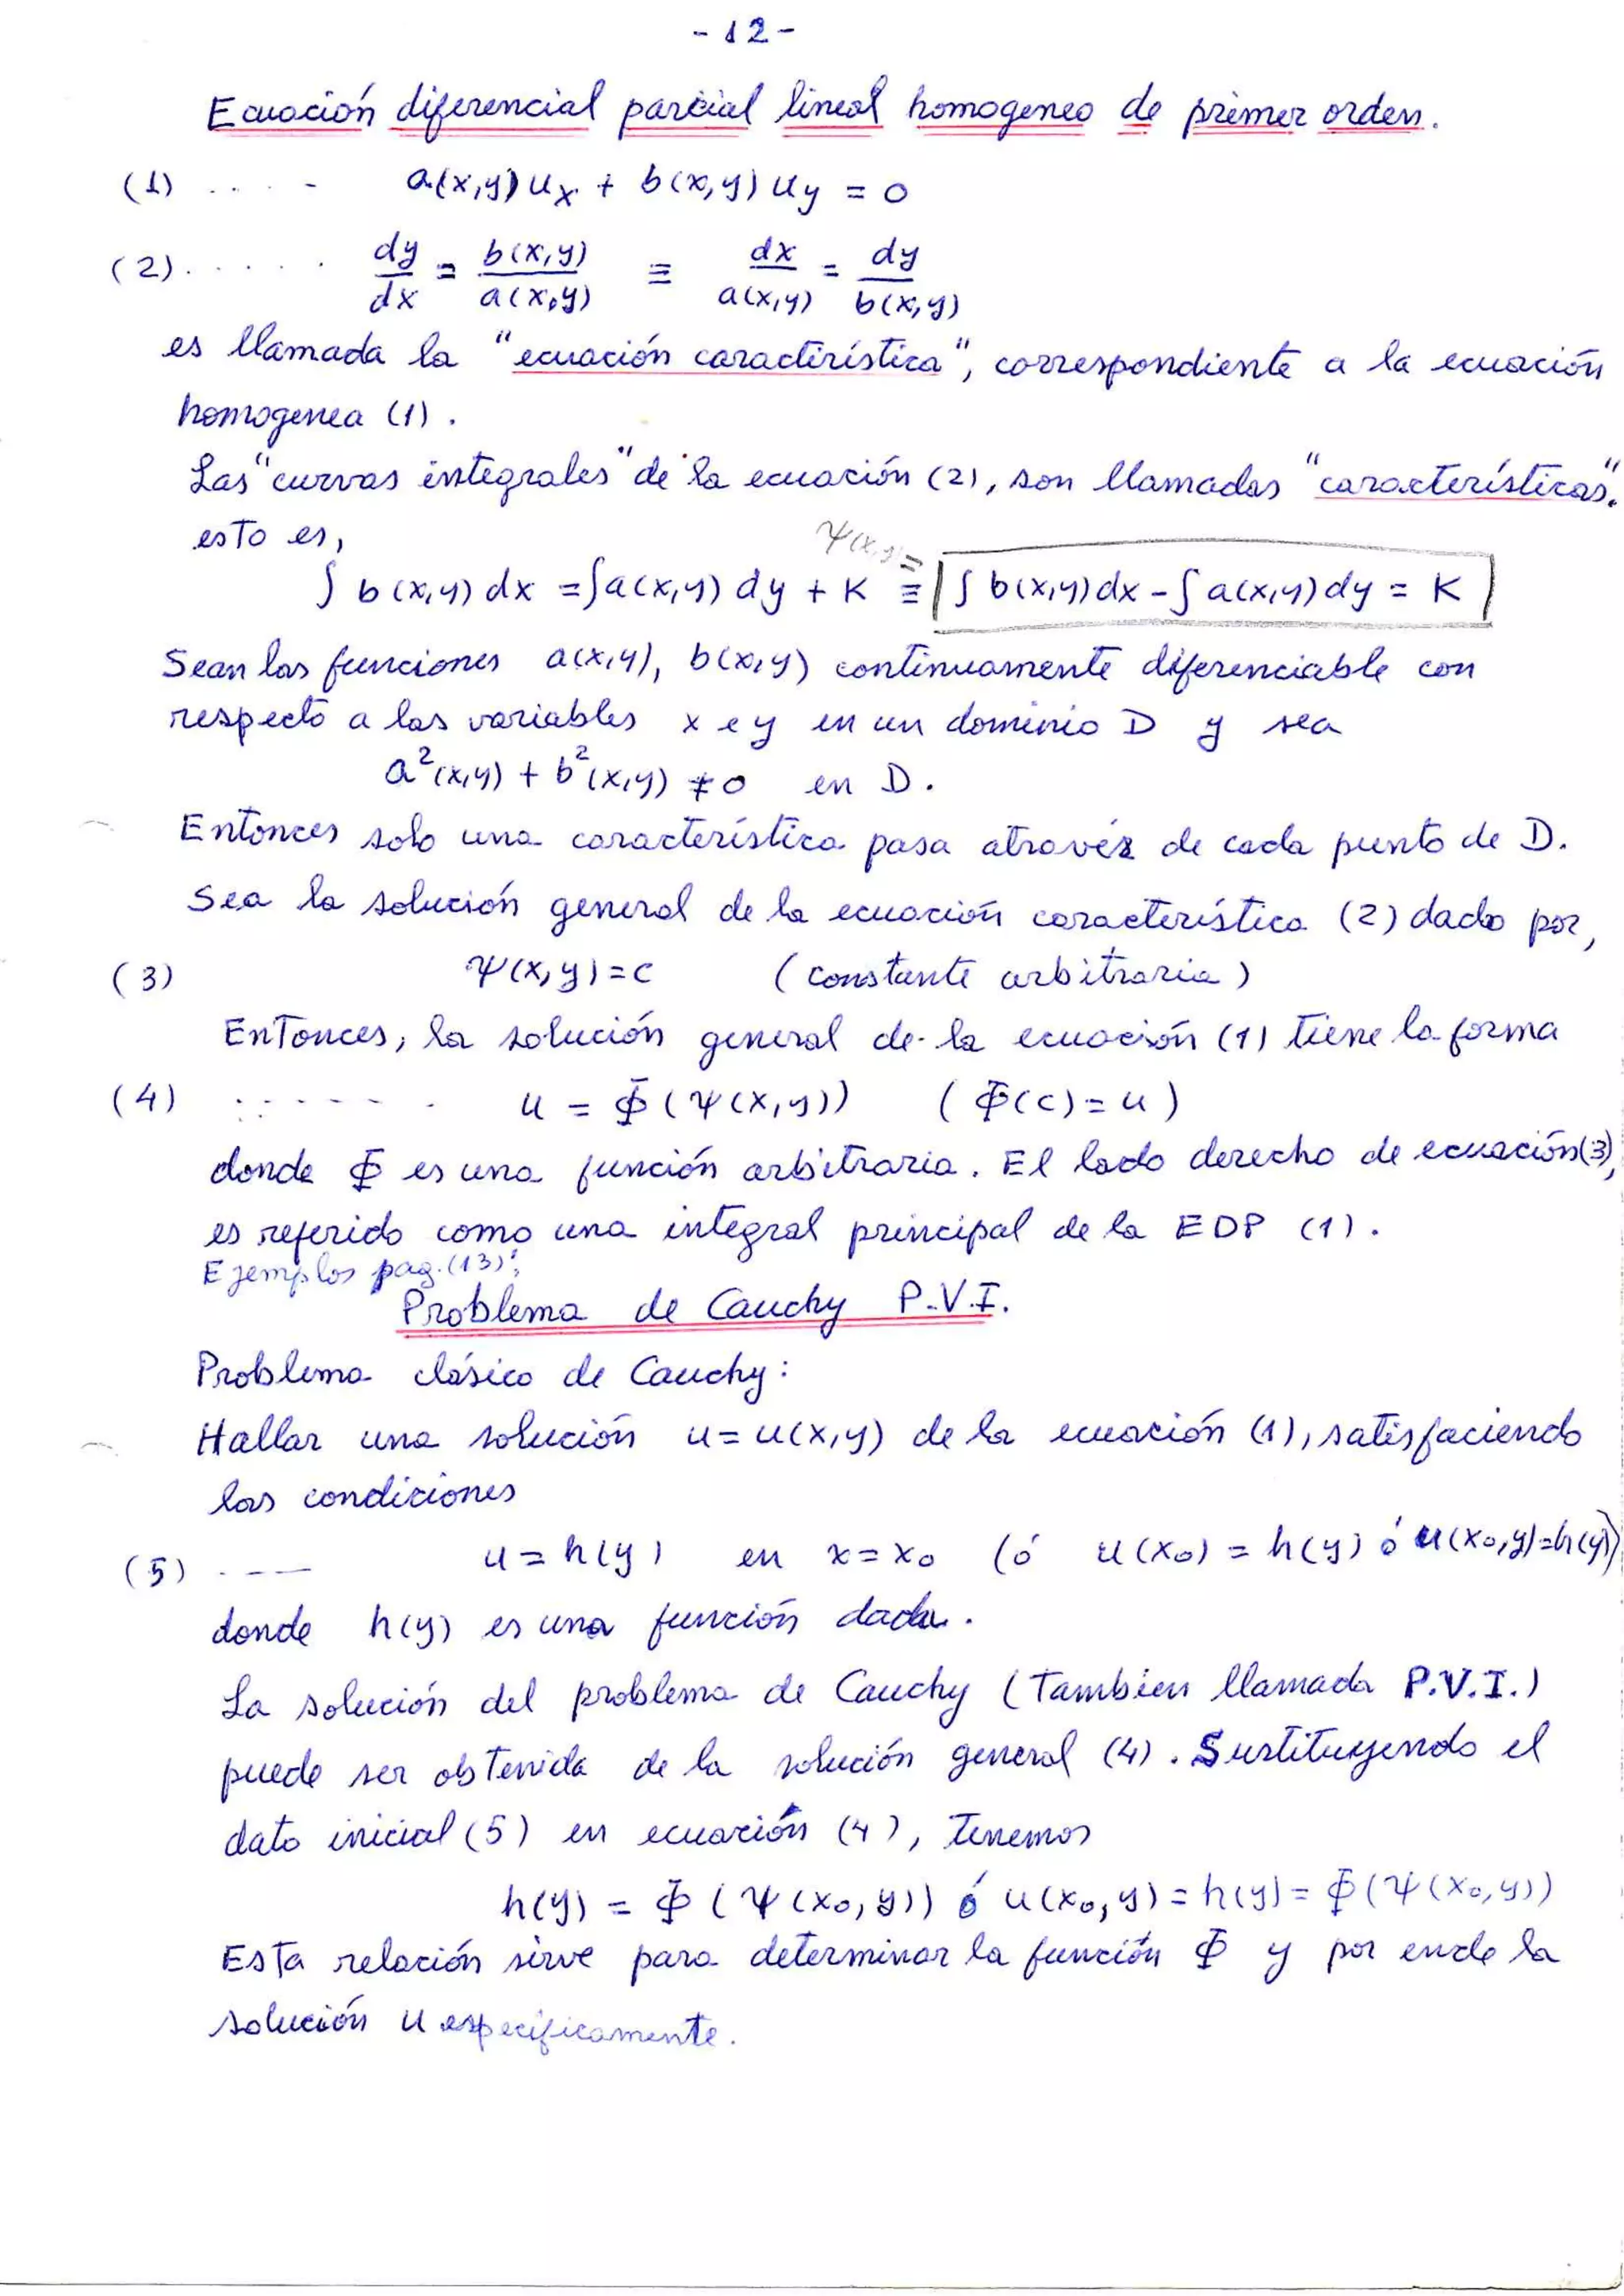 - 12 -
Ecuación diferencial parcial lineal homogeneo de primer orden.
(1) .... - a(x,y) ux + b(x,y) uy = 0
(2)..... dy/dx = b(x,y)/a(x,y) ≡ dx/a(x,y) = dy/b(x,y)
es llamada la "ecuación característica", correspondiente a la ecuación
homogenea (1).
Las "curvas integrales" de la ecuación (2), son llamadas "características".
esto es,
ψ(x,y)=
∫ b(x,y) dx = ∫ a(x,y) dy + K ≡ ∫ b(x,y)dx - ∫ a(x,y)dy = K
Sean las funciones a(x,y), b(x,y) continuamente diferenciable con
respecto a las variables x e y en un dominio D y sea
a²(x,y) + b²(x,y) ≠ 0 en D.
Entonces solo una característica pasa atravéz de cada punto de D.
Sea la solución general de la ecuación característica (2) dado por,
(3) ψ(x,y) = c (constante arbitraria)
Entonces, la solución general de la ecuación (1) tiene la forma
(4) ...... u = Φ(ψ(x,y)) (Φ(c) = u)
donde Φ es una función arbitraria. El lado derecho de ecuación(3),
es referido como una integral principal de la EDP (1).
Ejemplos pag.(13):
Problema de Cauchy P.V.I.
Problema clásico de Cauchy:
Hallar una solución u = u(x,y) de la ecuación (1), satisfaciendo
las condiciones
(5) ---- u = h(y) en x = x₀ (ó u(x₀) = h(y) ó u(x₀,y)=h(y))
donde h(y) es una función dada.
La solución del problema de Cauchy (Tambien llamada P.V.I.)
puede ser obtenida de la solución general (4). Sustituyendo el
dato inicial (5) en ecuación (4), tenemos
h(y) = Φ(ψ(x₀,y)) ó u(x₀,y) = h(y) = Φ(ψ(x₀,y))
Esta relación sirve para determinar la función Φ y por ende la
solución u especificamente.